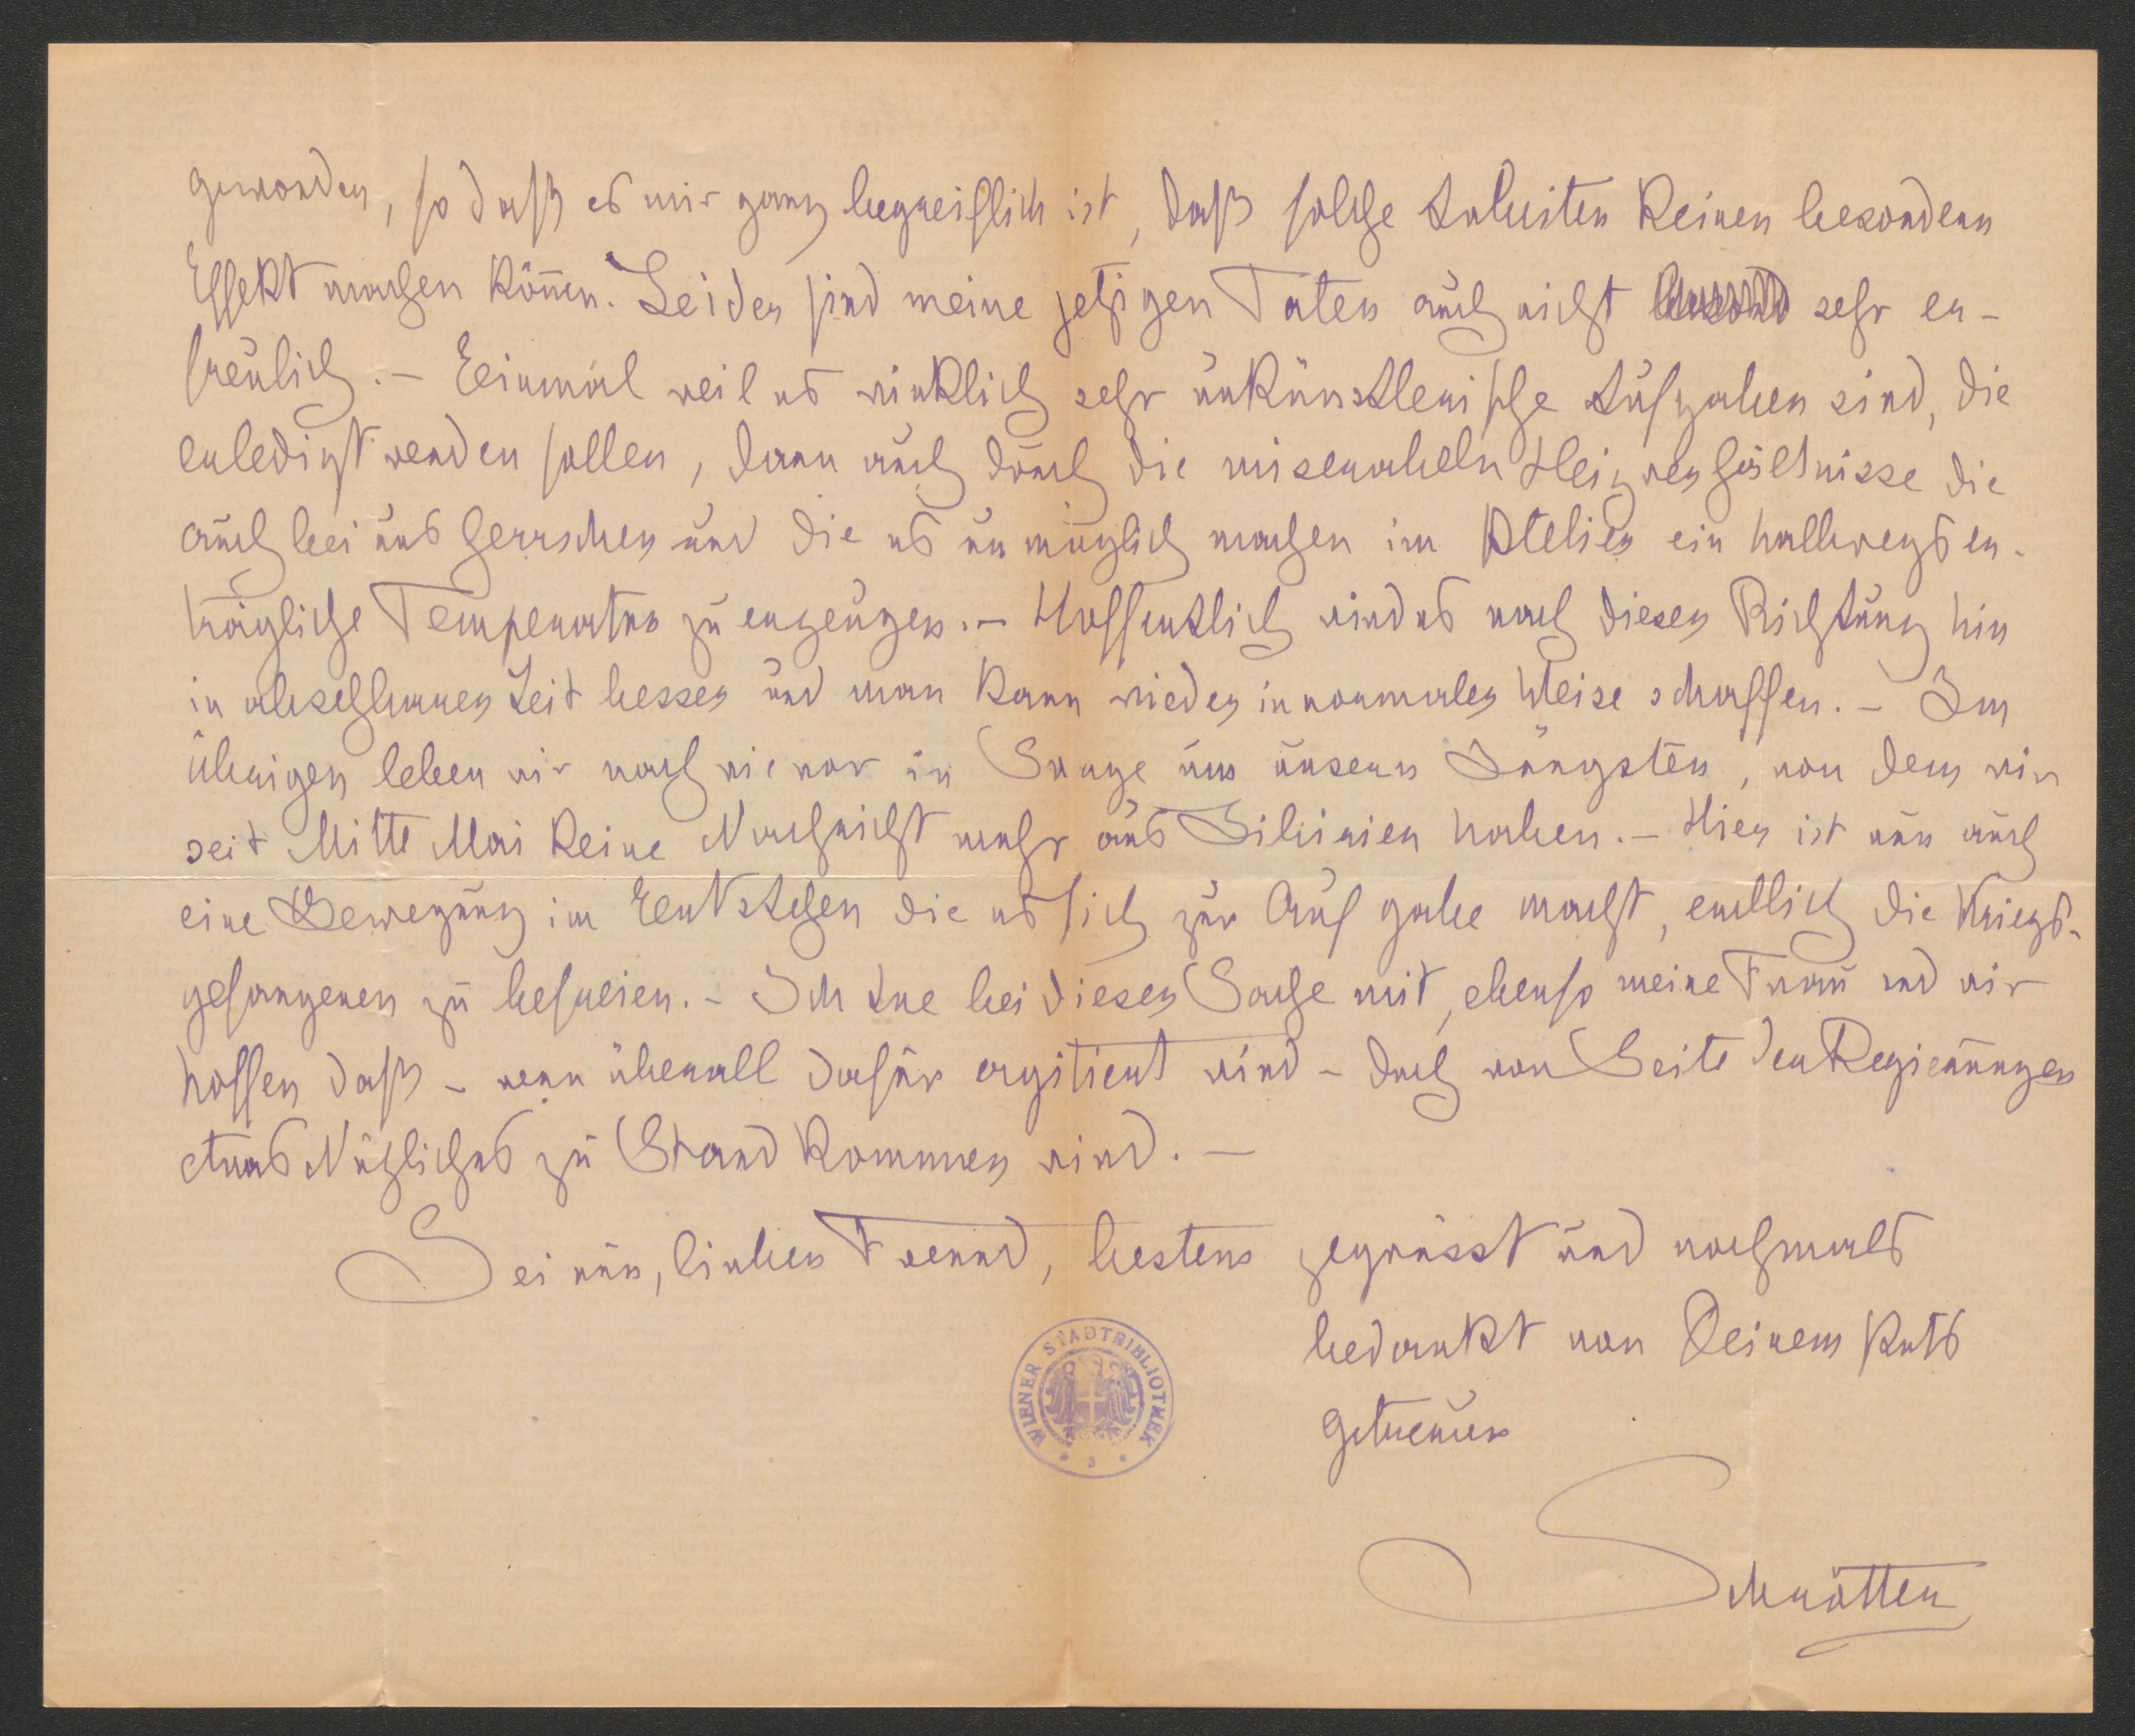 geworden, so daß es mir ganz begreiflich ist, daß solche Arbeiten keinen besondern
Effekt machen können. Leider sind meine jetzigen Taten auch nicht sehr er-
freulich. – Einmal weil es wirklich sehr unkünstlerische Aufgaben sind, die
erledigt werden sollen, dann auch durch die miserabeln Heizverhältnisse die
auch bei uns herrschen und die es unmöglich machen im Atelier ein halbwegs er-
trägliche Temperatur zu erzeugen. – Hoffentlich wird es nach dieser Richtung hin
in absehbarer Zeit besser und man kann wieder in normaler Weise schaffen. – Im
übrigen leben wir nach wie vor in Sorge um unsern Jüngsten, von dem wir
seit Mitte Mai keine Nachricht mehr aus Sibirien haben. – Hier ist nun auch
eine Bewegung im Entstehen die es sich zur Aufgabe macht, endlich die Kriegs-
gefangenen zu befreien. – Ich tue bei dieser Sache mit, ebenso meine Frau und wir
hoffen daß – wenn überall dafür agitiert wird – doch von Seite der Regierungen
etwas Nützliches zu Stand kommen wird. –
Sei nun, lieber Freund, bestens gegrüsst und nochmals
bedankt von Deinem stets
getreuen
WIENER STADTBIBLIOTHEK